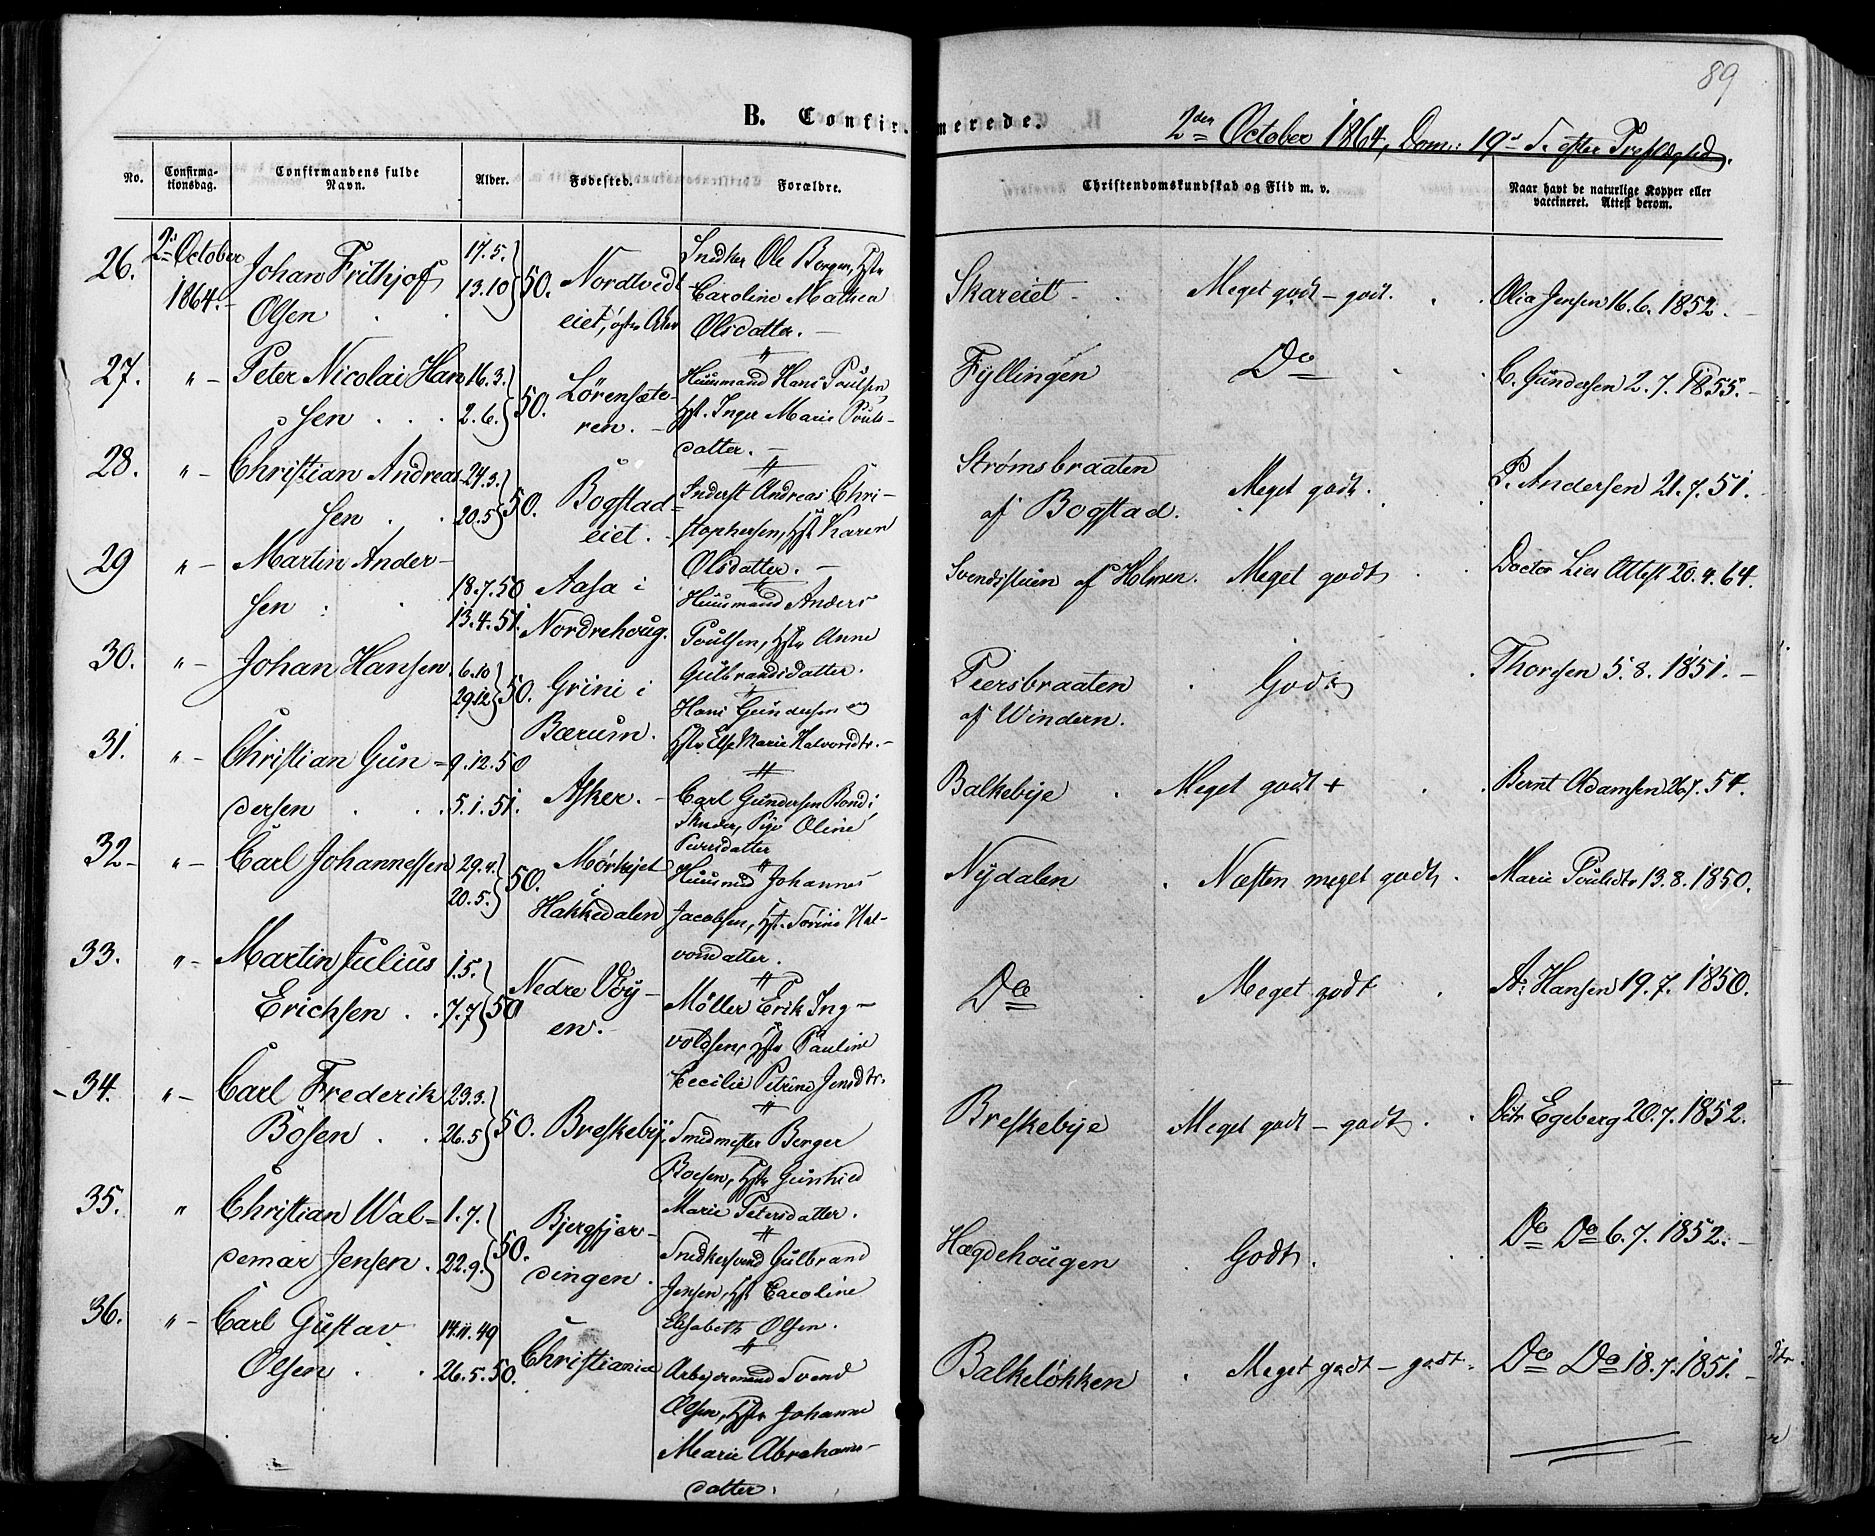 89
B. Confirmerede.
2den October 1864, Dom: 19de S. efter Trefold.
No.
Confirmationsdag.
Confirmandens fulde Navn.
Alder.
Fødested.
Forældre.
Christendomskundskab og Flid m. v.
Naar havt de naturlige Kopper eller vaccineret. Attest derom.
26. 2. October 1864.
Johan Frithjof
Olsen
17.5.
13.10 } 50.
Nordtvedt
eiet, østre Aker
Snedker Ole
Caroline Mathea
Olsdatter.
Skareiet
Meget godt – godt.
Olia Jensen 16.6.1852.
27. " –
Peter Nicolai Han
sen
16.3.
2.6. } 50.
Lørensæte-
ren.
Huusmand Hans Poulsen,
Hst. Inger Marie Pouls-
datter.
Fyllingen
Do
C. Gundersen 2.7.1855.
28. " –
Christian Andreas-
sen
24.3.
20.5 } 50.
Bogstad-
eiet.
Inderst Andreas Chri-
stophersen, Hst Karen
Olsdatter.
Strømsbraaten
af Bogstad.
Meget godt.
P. Andersen 21.7.51.
29 " –
Martin Ander-
sen
18.7.50
13.4.51.
Aasa i
Nordrehoug.
Huusmand Anders
Poulsen, Hst Anne
Gulbrandsdatter.
Svendstuen af Holmen.
Meget godt
Doctor Lies Attest 20.4.64.
30. " –
Johan Hansen
6.10
29.12 } 50.
Grini i
Bærum.
Hans Gundersen og
Hst Else Marie Halvorsdtr.
Peersbraaten
af Windern.
Godt
Thorsen 5.8.1851.
31. " –
Christian Gun-
dersen
9.12.50
5.1.51.
Asker.
Carl Gundersen
Pige Oline
Peersdatter
Balkebye
Meget godt +
Bernt Adamsen 26.7.54.
32 – " –
Carl Johannessen
29.4.
20.5. } 50.
Mørkejet
i
Hakkedalen
Huusmd Johannes
Jacobsen, Hst. Sørine Hal-
vorsdatter.
Nydalen
Næsten meget godt.
Marie Poulsdtr 13.8.1850.
33. " –
Martin Julius
Erichsen
1.5.
7.7 } 50
Nedre Vøy-
en.
Möller Erik Ing-
voldsen, Hst Pauline
Cecilie Petrine Jensdtr.
Do
Meget godt
A. Hansen 19.7.1850.
34. " –
Carl Frederik
Bösen
23.3.
26.5 } 50.
Breskeby.
Smedmester Berger
Boesen, Hst Gunhild
Marie Petersdatter.
Breskebye
Meget godt – godt.
Dctr Egeberg 20.7.1852.
35. "
Christian Wal-
demar Jensen
1.7.
22.9. } 50.
Bjergfjer-
dingen.
Snedkersvend Gulbrand
Jensen, Hst Caroline
Elisabeth Olsen.
Hægdehougen
Godt.
Do Do 6.7.1852.
36. " –
Carl Gustav
Olsen
14.11.49
26.5.50.
Christiania
Arbejdsmand Svend
Olsen, Hst Johanne
Marie Abrahams-
datter.
Balkeløkken
Meget godt – godt.
Do Do 18.7.1851.